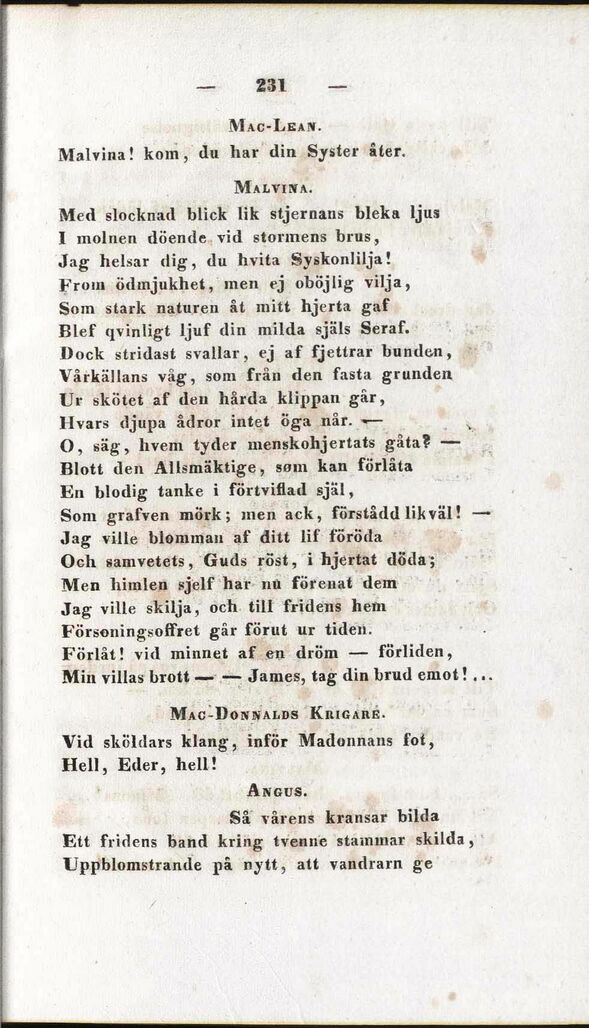 — 231 —
MAC-LEAN.
Malvina! kom, du har din Syster åter.
MALVINA.
Med slocknad blick lik stjernans bleka ljus
I molnen döende vid stormens brus,
Jag helsar dig, du hvita Syskonlilja!
From ödmjukhet, men ej oböjlig vilja,
Som stark naturen åt mitt hjerta gaf
Blef qvinligt ljuf din milda själs Seraf.
Dock stridast svallar, ej af fjettrar bunden,
Vårkällans våg, som från den fasta grunden
Ur skötet af den hårda klippan går,
Hvars djupa ådror intet öga når. —
O, säg, hvem tyder menskohjertats gåta? —
Blott den Allsmäktige, som kan förlåta
En blodig tanke i förtviflad själ,
Som grafven mörk; men ack, förstådd likväl! —
Jag ville blomman af ditt lif föröda
Och samvetets, Guds röst, i hjertat döda;
Men himlen sjelf har nu förenat dem
Jag ville skilja, och till fridens hem
Försoningsoffret går förut ur tiden.
Förlåt! vid minnet af en dröm — förliden,
Min villas brott — — James, tag din brud emot!...
MAC-DONNALDS KRIGARE.
Vid sköldars klang, inför Madonnans fot,
Hell, Eder, hell!
ANGUS.
Så vårens kransar bilda
Ett fridens band kring tvenne stammar skilda,
Uppblomstrande på nytt, att vandrarn ge